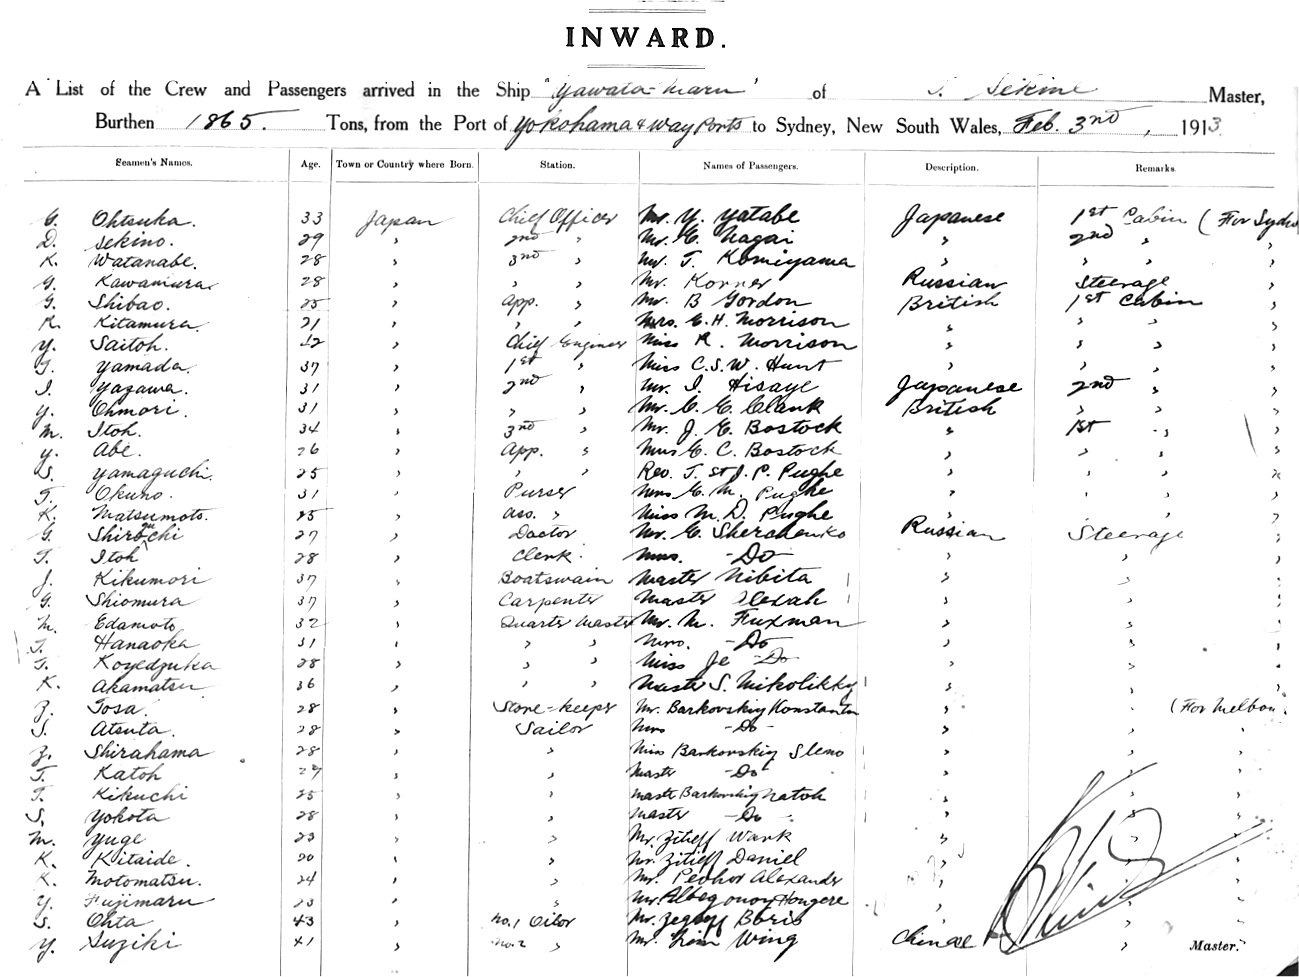 INWARD.
A List of the Crew and Passengers arrived in the Ship "Yawata Maru" of S. Sekine Master,
Burthen 1865. Tons, from the Port of Yokohama & way Ports to Sydney, New South Wales, Feb. 3rd, 1913
Seamen's Names. Age. Town or Country where Born. Station. Names of Passengers. Description. Remarks.
G. Ohtsuka. 33 Japan Chief Officer Mr. Y. Yatabe Japanese 1st Cabin (For Sydn
D. Sekino. 29 " 2nd " Mr. E. Nagai " 2nd " "
K. Watanabe. 28 " 3rd " Mr. T. Komiyama " " "
G. Kawamura 28 " " " Mr. Korner Russian Steerage "
G. Shibao. 25 " App. " Mr. B Gordon British 1st Cabin "
R. Kitamura. 21 " " " Mrs. E. H. Morrison " " " "
Y. Saitoh. " Chief Engineer Miss R. Morrison " " " "
T. Yamada. 37 " 1st " Miss C. S. W. Hunt " " " "
I. Yazawa. 31 " 2nd " Mr. I. Hisaye Japanese 2nd " "
Y. Ohmori. 31 " " " Mr. C. E. Clank British " " "
M. Itoh. 34 " 3rd " Mr. J. E. Bostock " 1st " "
Y. Abe. 26 " App. " Mrs E. C. Bostock " " " "
S. Yamaguchi. 25 " " " Rev. T. St J. P. Pughe " " " "
T. Okuno. 31 " Purser Mrs E. M. Pughe " " " "
K. Matsumoto. 25 " Ass. " Miss M. D. Pughe " " " "
G. Shirouchi 27 " Doctor Mr. G. Sherchenko Russian Steerage "
T. Itoh 28 " Clerk. Mrs. -Do- " " "
J. Kikumori 37 " Boatswain Master Nibita " " "
G. Shiomura 37 " Carpenter Master Olexah " " "
M. Edamoto 32 " Quarter Master Mr. M. Fuxman " " "
T. Hanaoka 31 " " " Mrs. -Do- " " "
T. Koyedzuka 28 " " " Miss Je -Do- " " "
K. Akamatsu 36 " " " Master S. Mikolikky " " "
Z. Tosa 28 " Store-keeper Mr. Barkovskiy Konstantn " " (For Melbou.
S. Atsuta. 28 " Sailor Mrs -Do- " " "
Z. Shirahama 28 " " Miss Barkovskiy Sleno " " "
T. Katoh 29 " " Master -Do- " " "
T. Kikuchi 25 " " Master Barkovskiy Natoh " " "
S. Yokota 28 " " Master -Do- " " "
M. Yuge 23 " " Mr. Zitieff Wark " " "
K. Kitaide. 20 " " Mr. Zitieff Daniel " " "
K. Motomatsu. 24 " " Mr. Pechor Alexander " " "
Y. Fujimaru 23 " " Mr. " " "
S. Ohta 43 " No. 1 Oiler Mr. Boris " " "
Y. Suziki 41 " No. 2 " Mr. Lim Wing Chinese " Master.